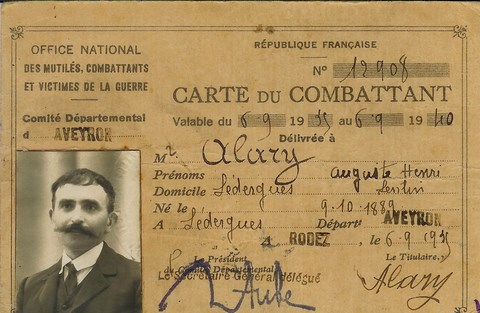 OFFICE NATIONAL
DES MUTILÉS, COMBATTANTS
ET VICTIMES DE LA GUERRE
Comité Départemental
d AVEYRON
RÉPUBLIQUE FRANÇAISE
Nº 12908
CARTE DU COMBATTANT
Valable du 6.9 1935 au 6.9 1940
Délivrée à
Mr. Alary
Prénoms Auguste Henri
Domicile Lédergues
Né le 9.10.1889
A Lédergues Départt AVEYRON
à RODEZ, le 6.9 1935
Président
du Comité Départemental
Le Secrétaire Général délégué
Le Titulaire,
Alary